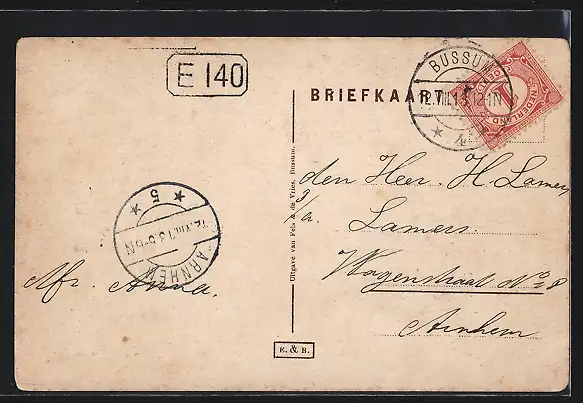 E 140
BRIEFKAART
BUSSUM
12.VIII.13.12-1N
4
NEDERLAND
1
5
12.VIII.13.3-6N
ARNHEM
Uitgave van Fels & de Vries, Bussum.
den Heer H. Lamers
p/a. Lamers
Wagenstraat No 8
Arnhem
Afz. Anna.
E. & B.